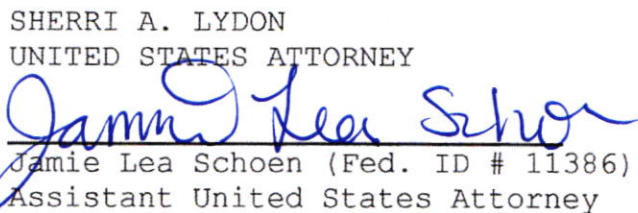 SHERRI A. LYDON
UNITED STATES ATTORNEY
Jamie Lea Schoen
Jamie Lea Schoen (Fed. ID # 11386)
Assistant United States Attorney